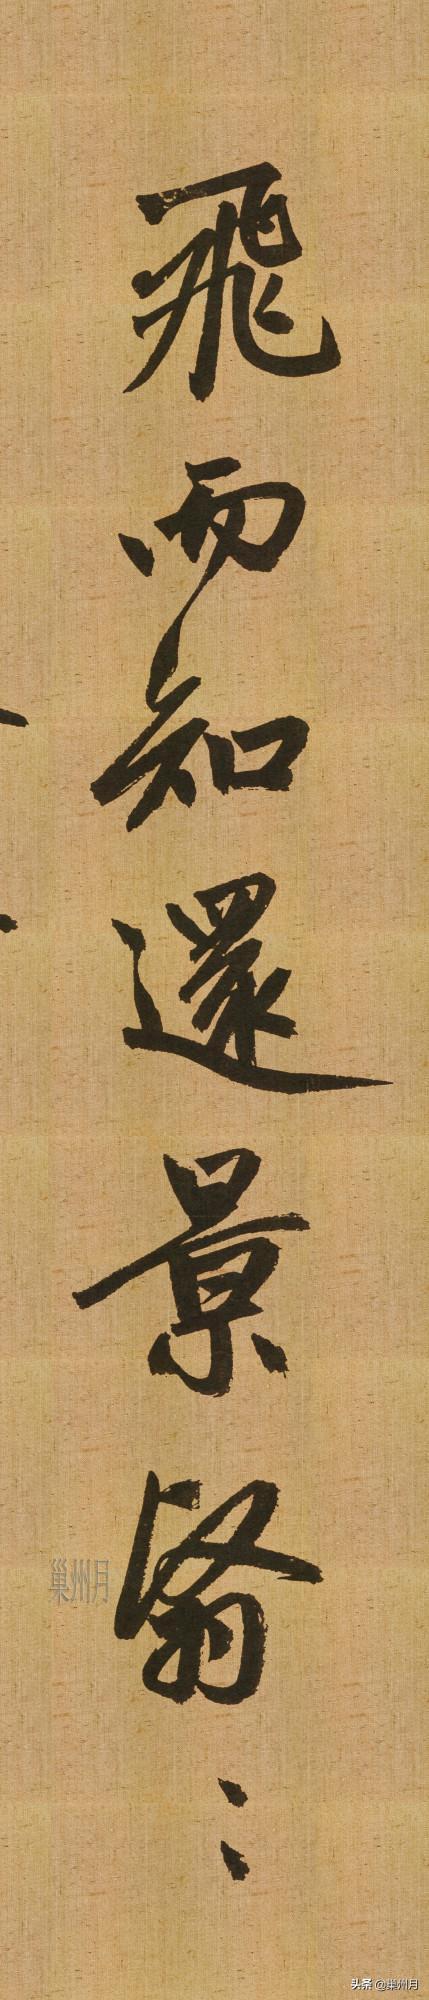 飛而知還景翳〻
巢州月
头条 @巢州月